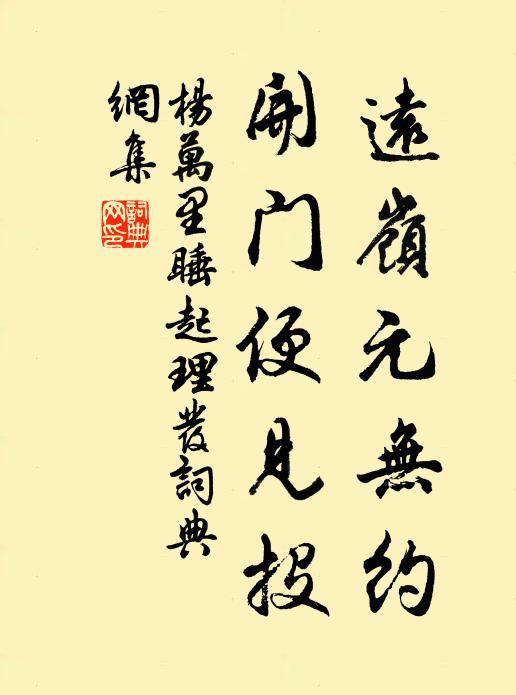 遠嶺元無約
開門便見投
楊萬里睡起理發詞典
網集
詞典
网印